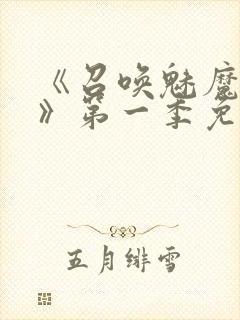 《召唤魅魔
》第一季免
五月绯雪